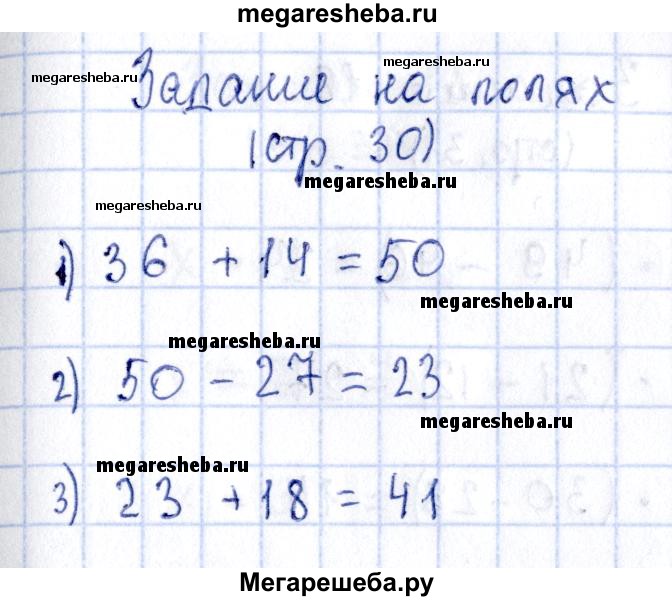 megaresheba.ru
megaresheba.ru
megaresheba.ru
Задание на полях
(стр. 30)
megaresheba.ru
megaresheba.ru
1) 36 + 14 = 50
megaresheba.ru
megaresheba.ru
2) 50 - 27 = 23
megaresheba.ru
megaresheba.ru
3) 23 + 18 = 41
Мегарешеба.ру